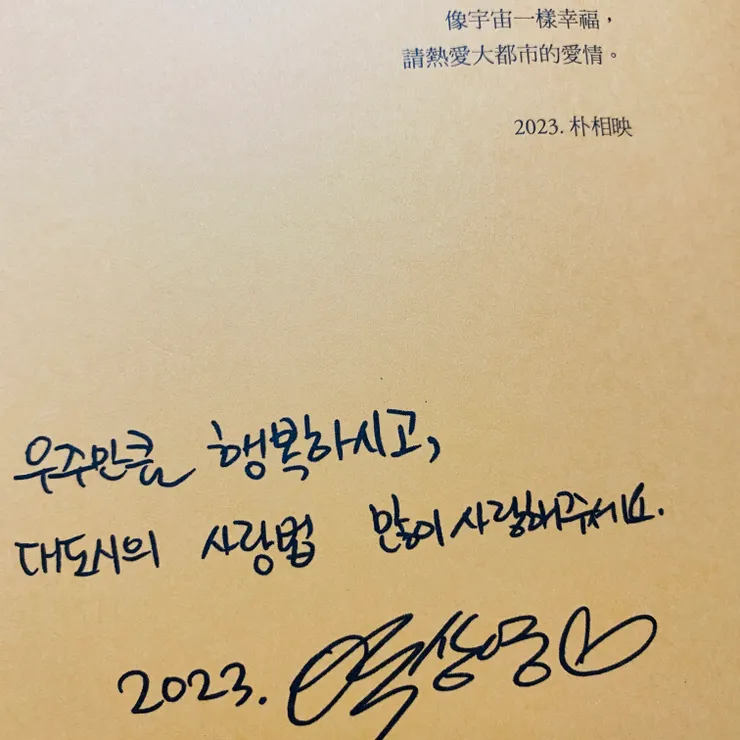 像宇宙一樣幸福，
請熱愛大都市的愛情。
2023. 朴相映
우주만큼 행복하시고,
대도시의 사랑법 많이 사랑해주세요.
2023. 박상영